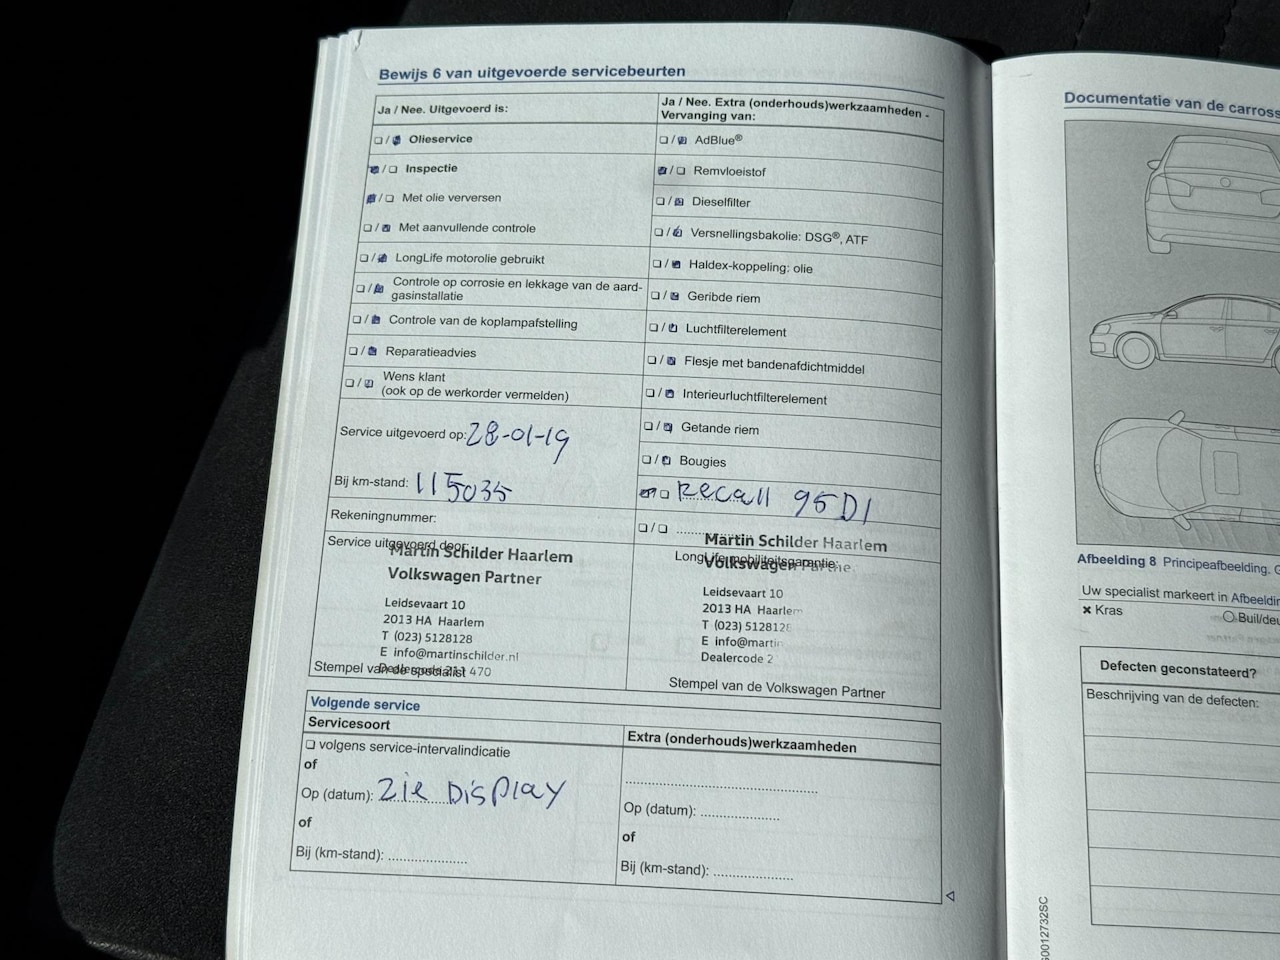 Bewijs 6 van uitgevoerde servicebeurten
Ja / Nee. Uitgevoerd is:
Olieservice
Inspectie
Met olie verversen
Met aanvullende controle
LongLife motorolie gebruikt
Controle op corrosie en lekkage van de aard-
gasinstallatie
Controle van de koplampafstelling
Reparatieadvies
Wens klant
(ook op de werkorder vermelden)
Service uitgevoerd op: 28-01-19
Bij km-stand: 115035
Rekeningnummer:
Service uitgevoerd door:
Martin Schilder Haarlem
Volkswagen Partner
Leidsevaart 10
2013 HA Haarlem
T (023) 5128128
E info@martinschilder.nl
Dealercode 211 470
Stempel van de specialist
Ja / Nee. Extra (onderhouds)werkzaamheden -
Vervanging van:
AdBlue®
Remvloeistof
Dieselfilter
Versnellingsbakolie: DSG®, ATF
Haldex-koppeling: olie
Geribde riem
Luchtfilterelement
Flesje met bandenafdichtmiddel
Interieurluchtfilterelement
Getande riem
Bougies
Recall 95D1
Martin Schilder Haarlem
LongLife mobiliteitsgarantie:
Volkswagen Partne
Leidsevaart 10
2013 HA Haarlem
T (023) 5128128
E info@martin
Dealercode 2
Stempel van de Volkswagen Partner
Volgende service
Servicesoort
volgens service-intervalindicatie
of
Op (datum): zie Display
of
Bij (km-stand): ....................
Extra (onderhouds)werkzaamheden
Op (datum): ....................
of
Bij (km-stand): ....................
Documentatie van de carross
Afbeelding 8 Principeafbeelding.
Uw specialist markeert in Afbeeldin
Kras
Buil/deu
Defecten geconstateerd?
Beschrijving van de defecten:
G0012732SC